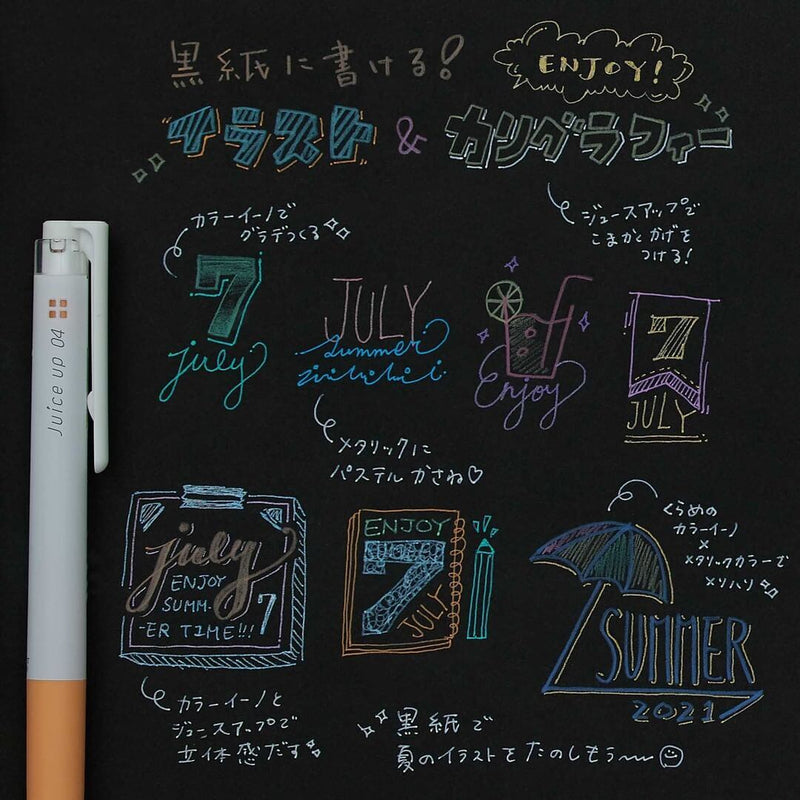 黒紙に書ける!
ENJOY!
イラスト & カリグラフィー
カラーイーノで
グラデつくる
ジュースアップで
こまかくかげを
つける!
7
july
JULY
summer
Enjoy
7
JULY
メタリックに
パステルかさね♡
july
ENJOY
SUMM-
-ER TIME!!!
7
ENJOY
7
JULY
くらめの
カラーイーノ
×
メタリックカラーで
メリハリ
SUMMER
2021
カラーイーノと
ジュースアップで
立体感だす
黒紙で
夏のイラストをたのしもう〜
Juice up 04